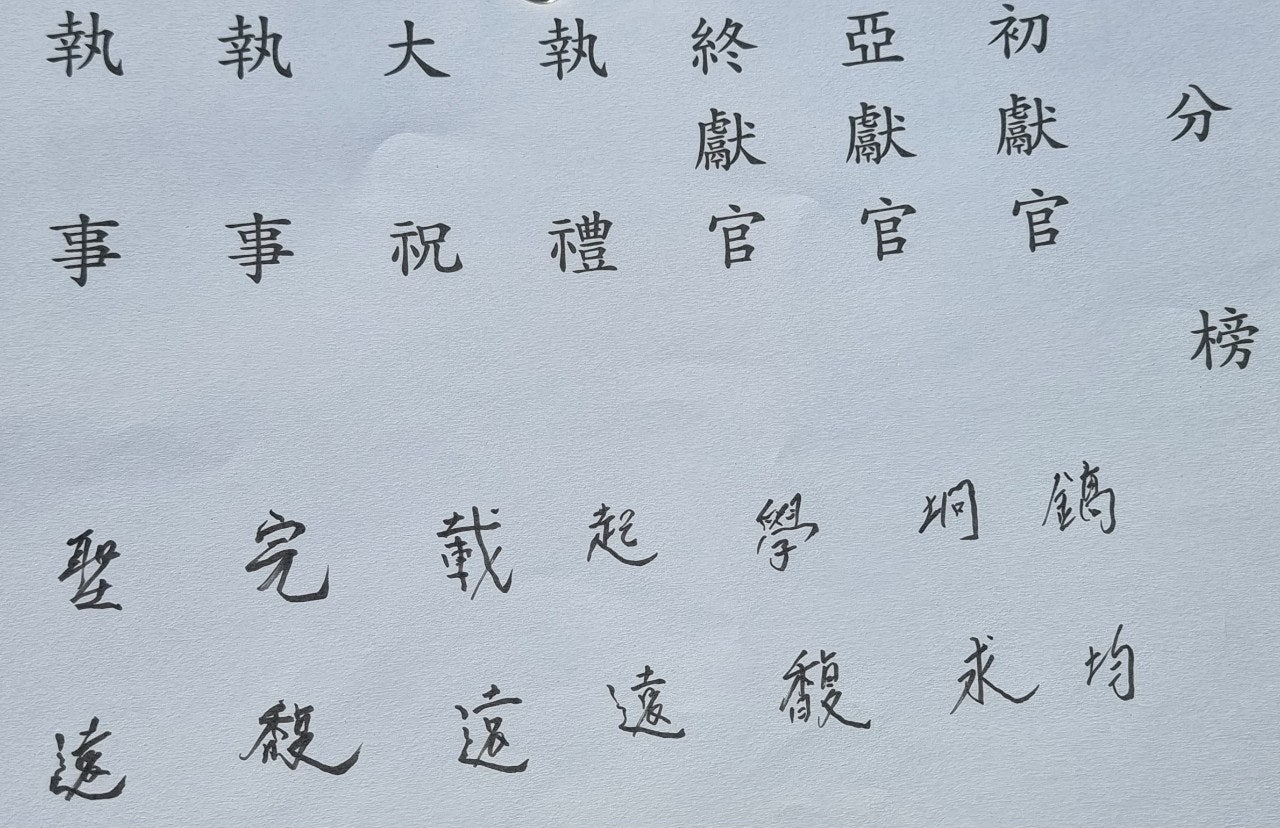 分榜
初獻官 鎬均
亞獻官 坰求
終獻官 學馥
執禮 起遠
大祝 載遠
執事 完馥
執事 聖遠